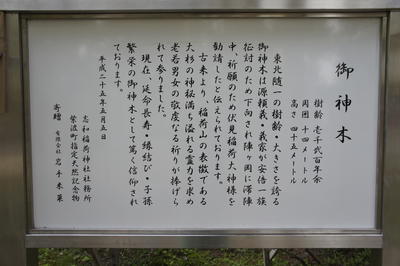 御神木
樹齢 壱千弐百年余
周囲 十四メートル
高さ 四十五メートル
東北随一の樹齢・大きさを誇る
御神木は源頼義、義家が安倍一族
征討のため下向され陣ヶ岡に滞陣
中、祈願のため伏見稲荷大神様を
勧請したと伝えられております。
古来より、稲荷山の表徴である
大杉の神秘満ち溢れる霊力を求め
老若男女の敬虔なる祈りが捧げら
れて参りました。
現在、延命長寿・縁結び・子孫
繁栄の御神木として篤く信仰され
ております。
平成二十五年五月五日
志和稲荷神社社務所
紫波町指定天然記念物
寄贈 有限会社 岩手木業